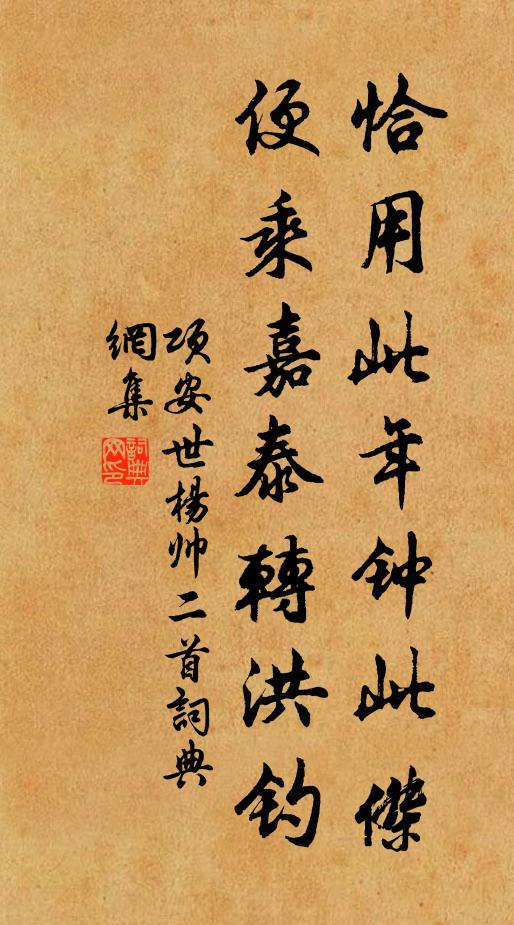 恰用此年钟此傑
便乘嘉泰轉洪钧
项安世楊帅二首詞典
網集
詞典網印